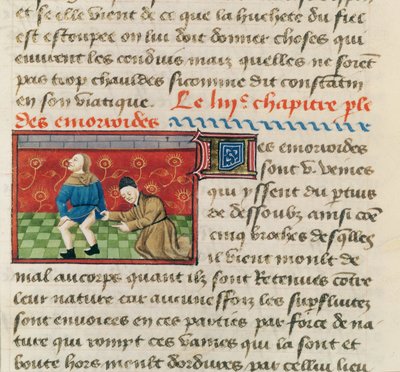 et se elle vient de ce que la huchete du fiel
est estoupee on luy doit donner choses qui
euurent les conduis maiz quelles ne soient
pas trop chauldes sicomme dit constantin
en son viatique. Le iiije chapitre ple
des emoroides
Les emoroides
sont v. veines
qui yssent du ptuis
de dessoubz ainsi coe
cinq broches desqlles
il vient moult de
mal au corps quant ilz sont retenues contre
leur nature car aucuneffoiz les supfluitez
sont enuoiees en ces parties par force de na
ture qui rompt ces vaines qui la sont et
boute hors moult dordures par cellui lieu